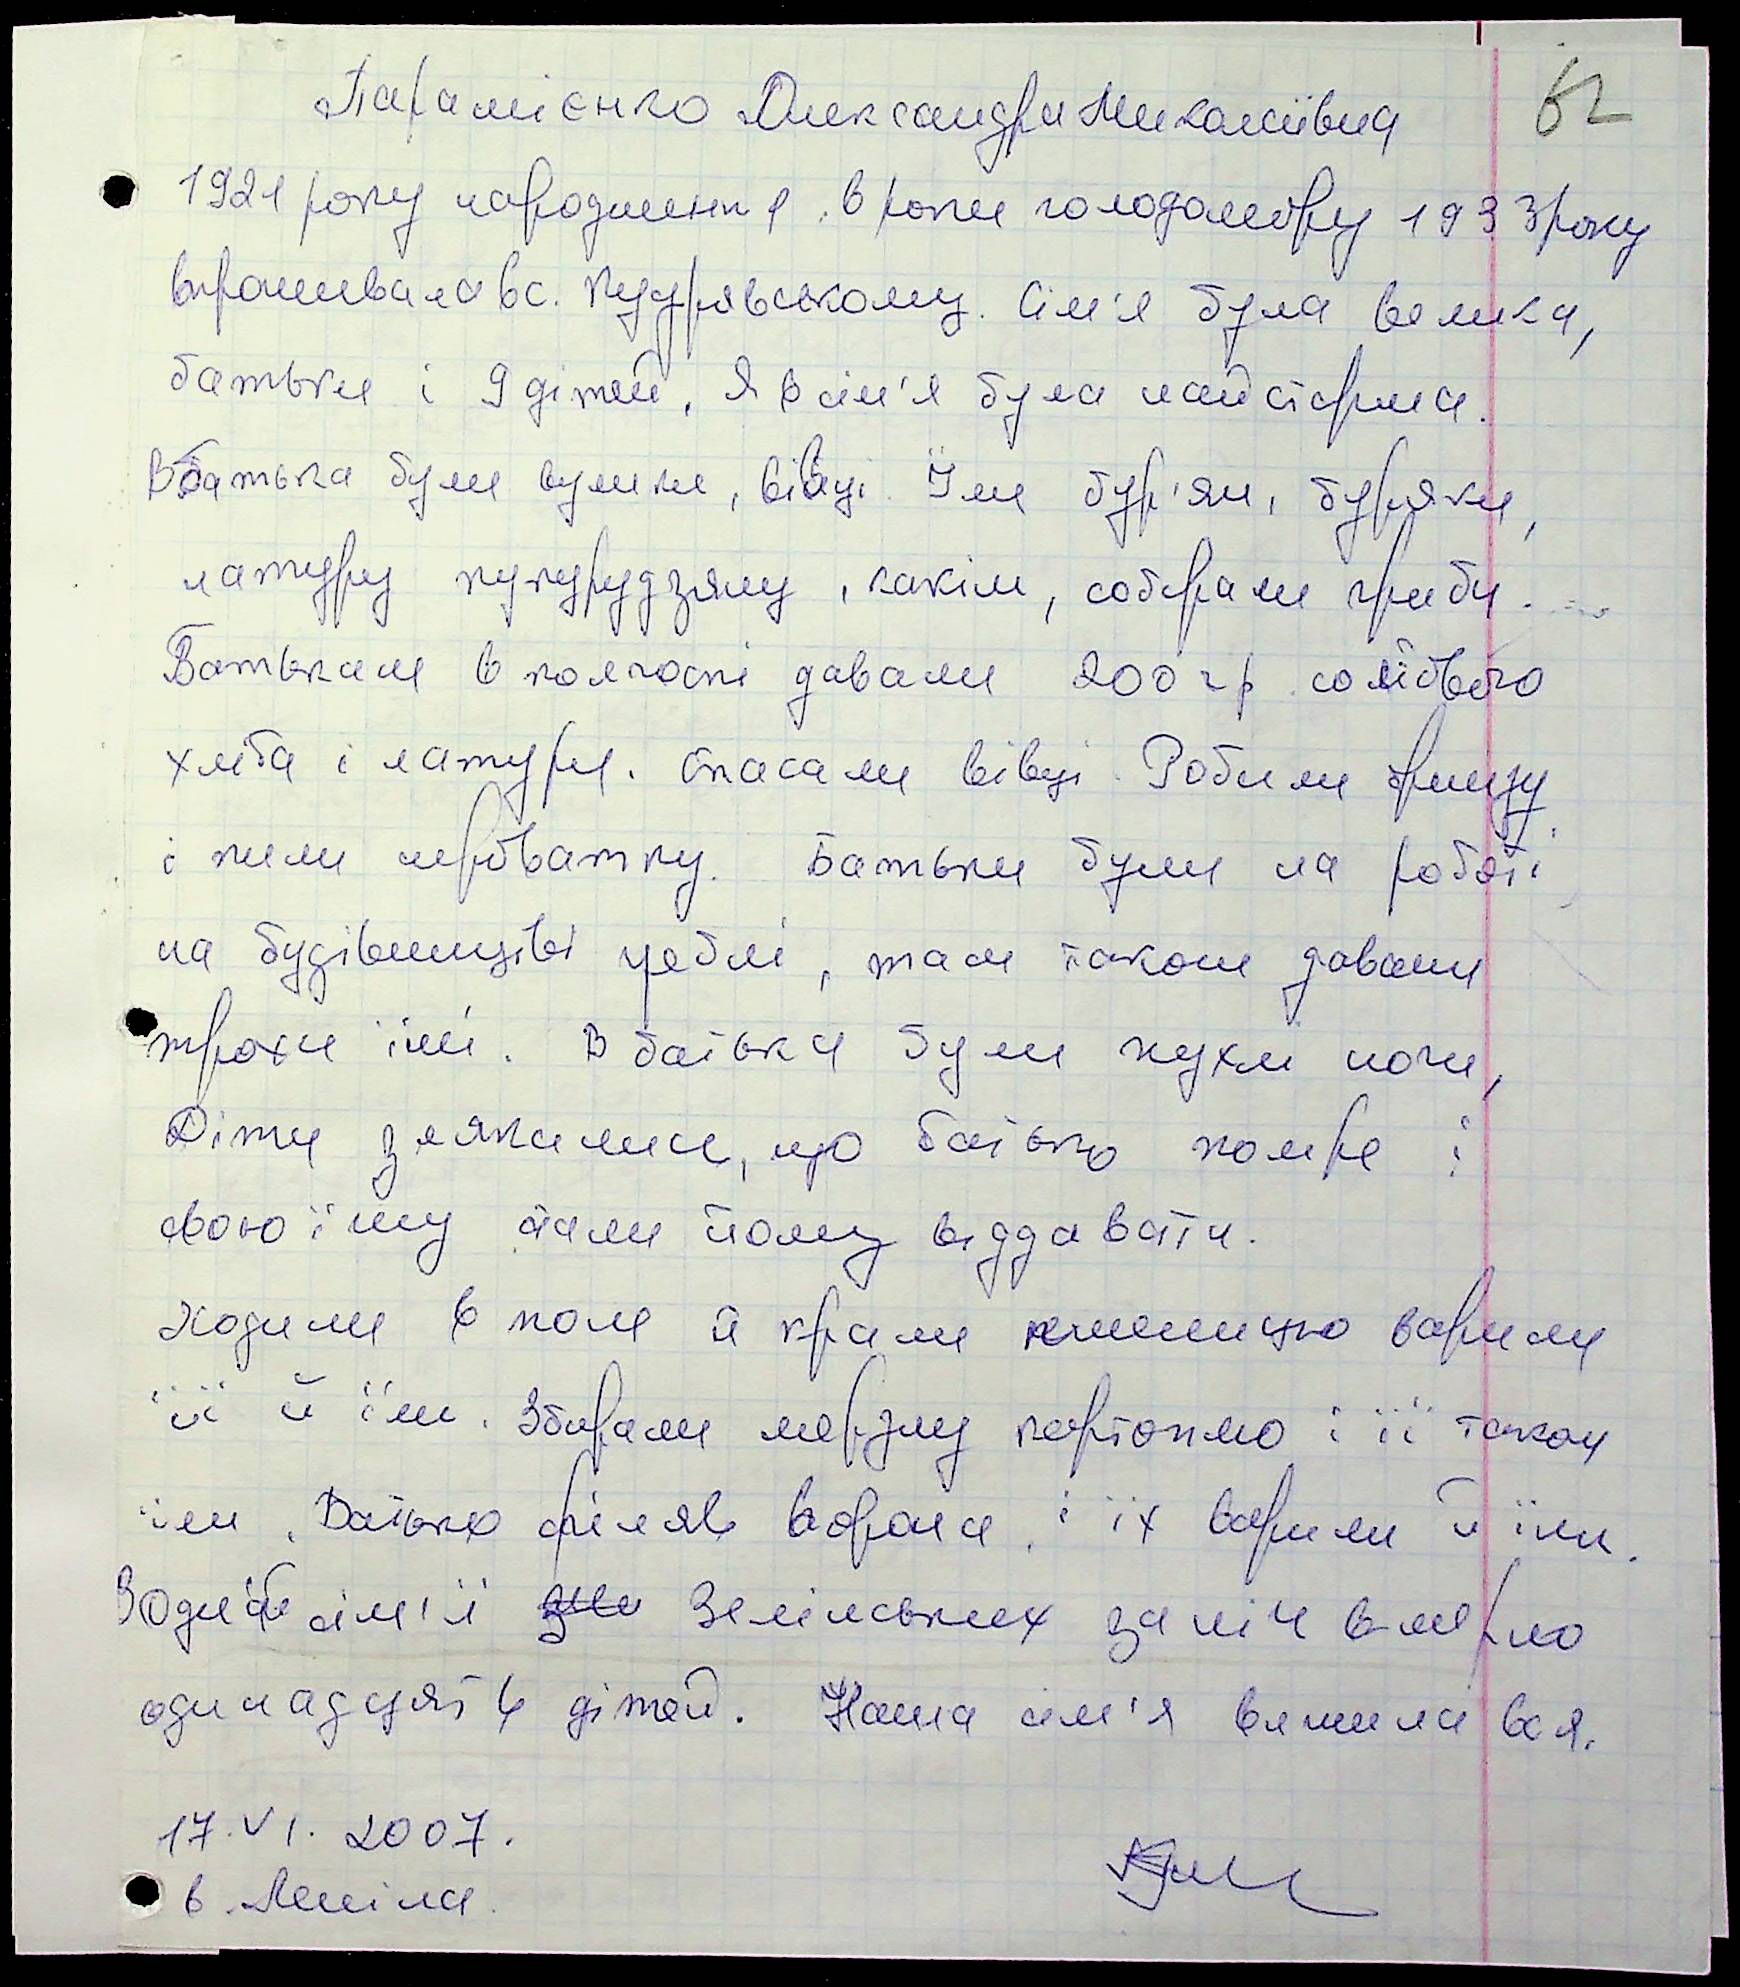 62
Парамієнко Олександра Миколаївна
1921 року народження. в роки голодомору 1933 року
проживала в с. Кудрявському. Сім'я була велика,
батьки і 9 дітей, я в сім'я була найстарша.
В батька були вулики, вівці. Їли бур'ян, буряки,
латуру кукурудзяну, качін, собірали гриби.
Батькам в колгоспі давали 200 гр соєвого
хліба і латури. Спасали вівці. Робили бринзу
і пили сироватку. Батьки були на роботі
на будівництві греблі, там також давали
трохи їжі. В батька були пухлі ноги,
Діти злякалися, що батько помре і
свою їжу стали йому віддавати.
Ходили в поле й крали пшеницю варили
її й їли. Збирали мерзлу картоплю і її також
їли. Батько стріляв ворона, і їх варили й їли.
В одній сім'ї Зелінських за ніч вмерло
одинадцять дітей. Наша сім'я вижила вся.
17.VI.2007.
в. Леніна